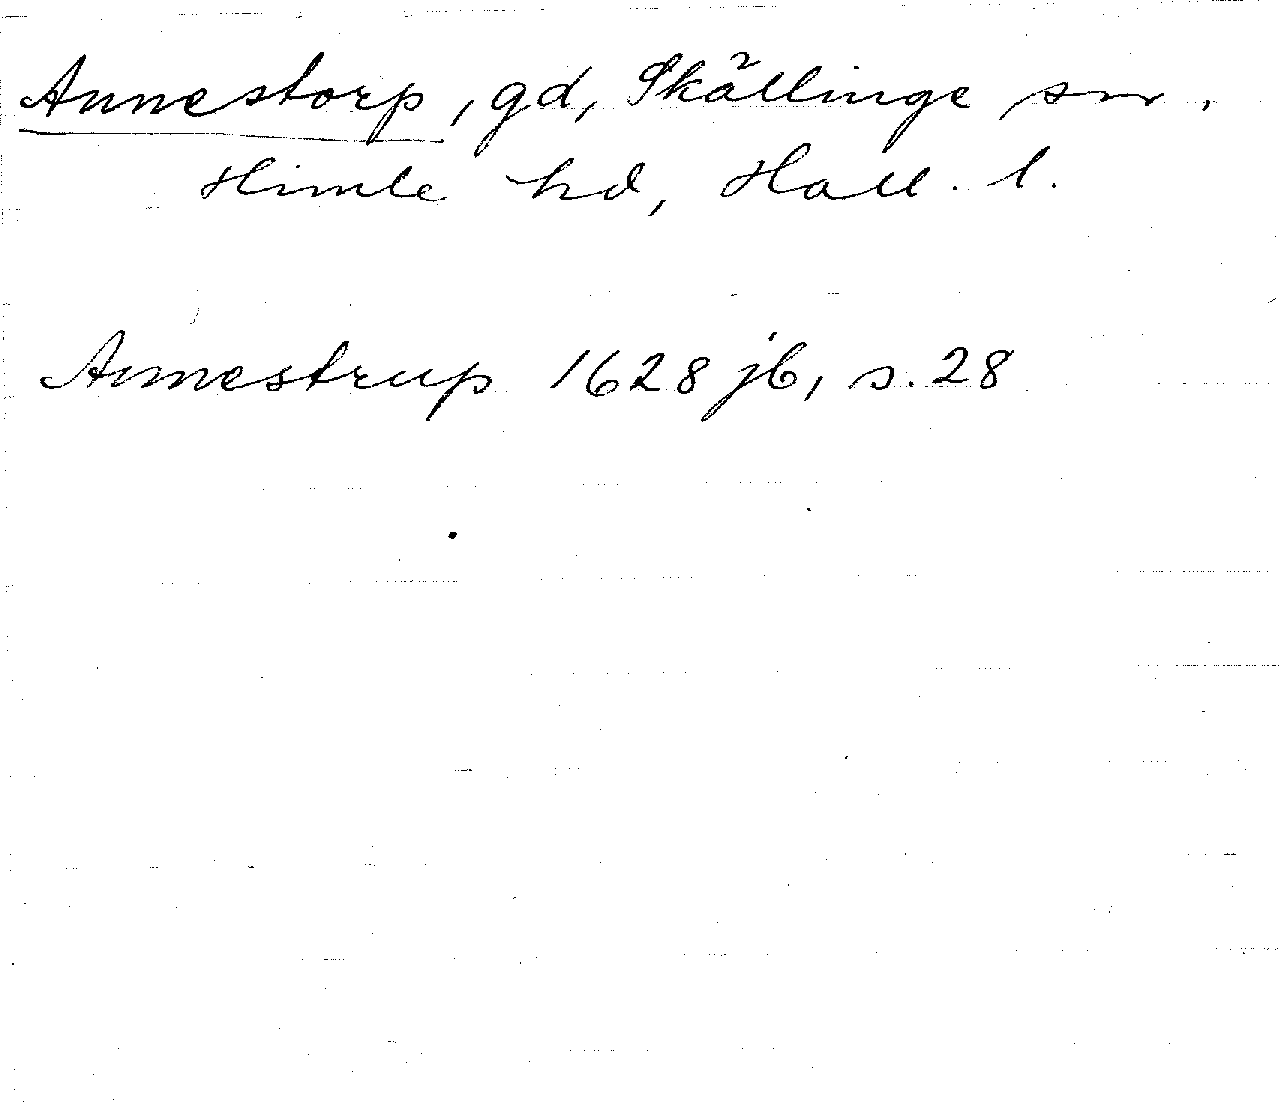 Annestorp, gd, Skällinge sn.
Himle hd, Hall. l.
Annestrup 1628 jb, s. 28